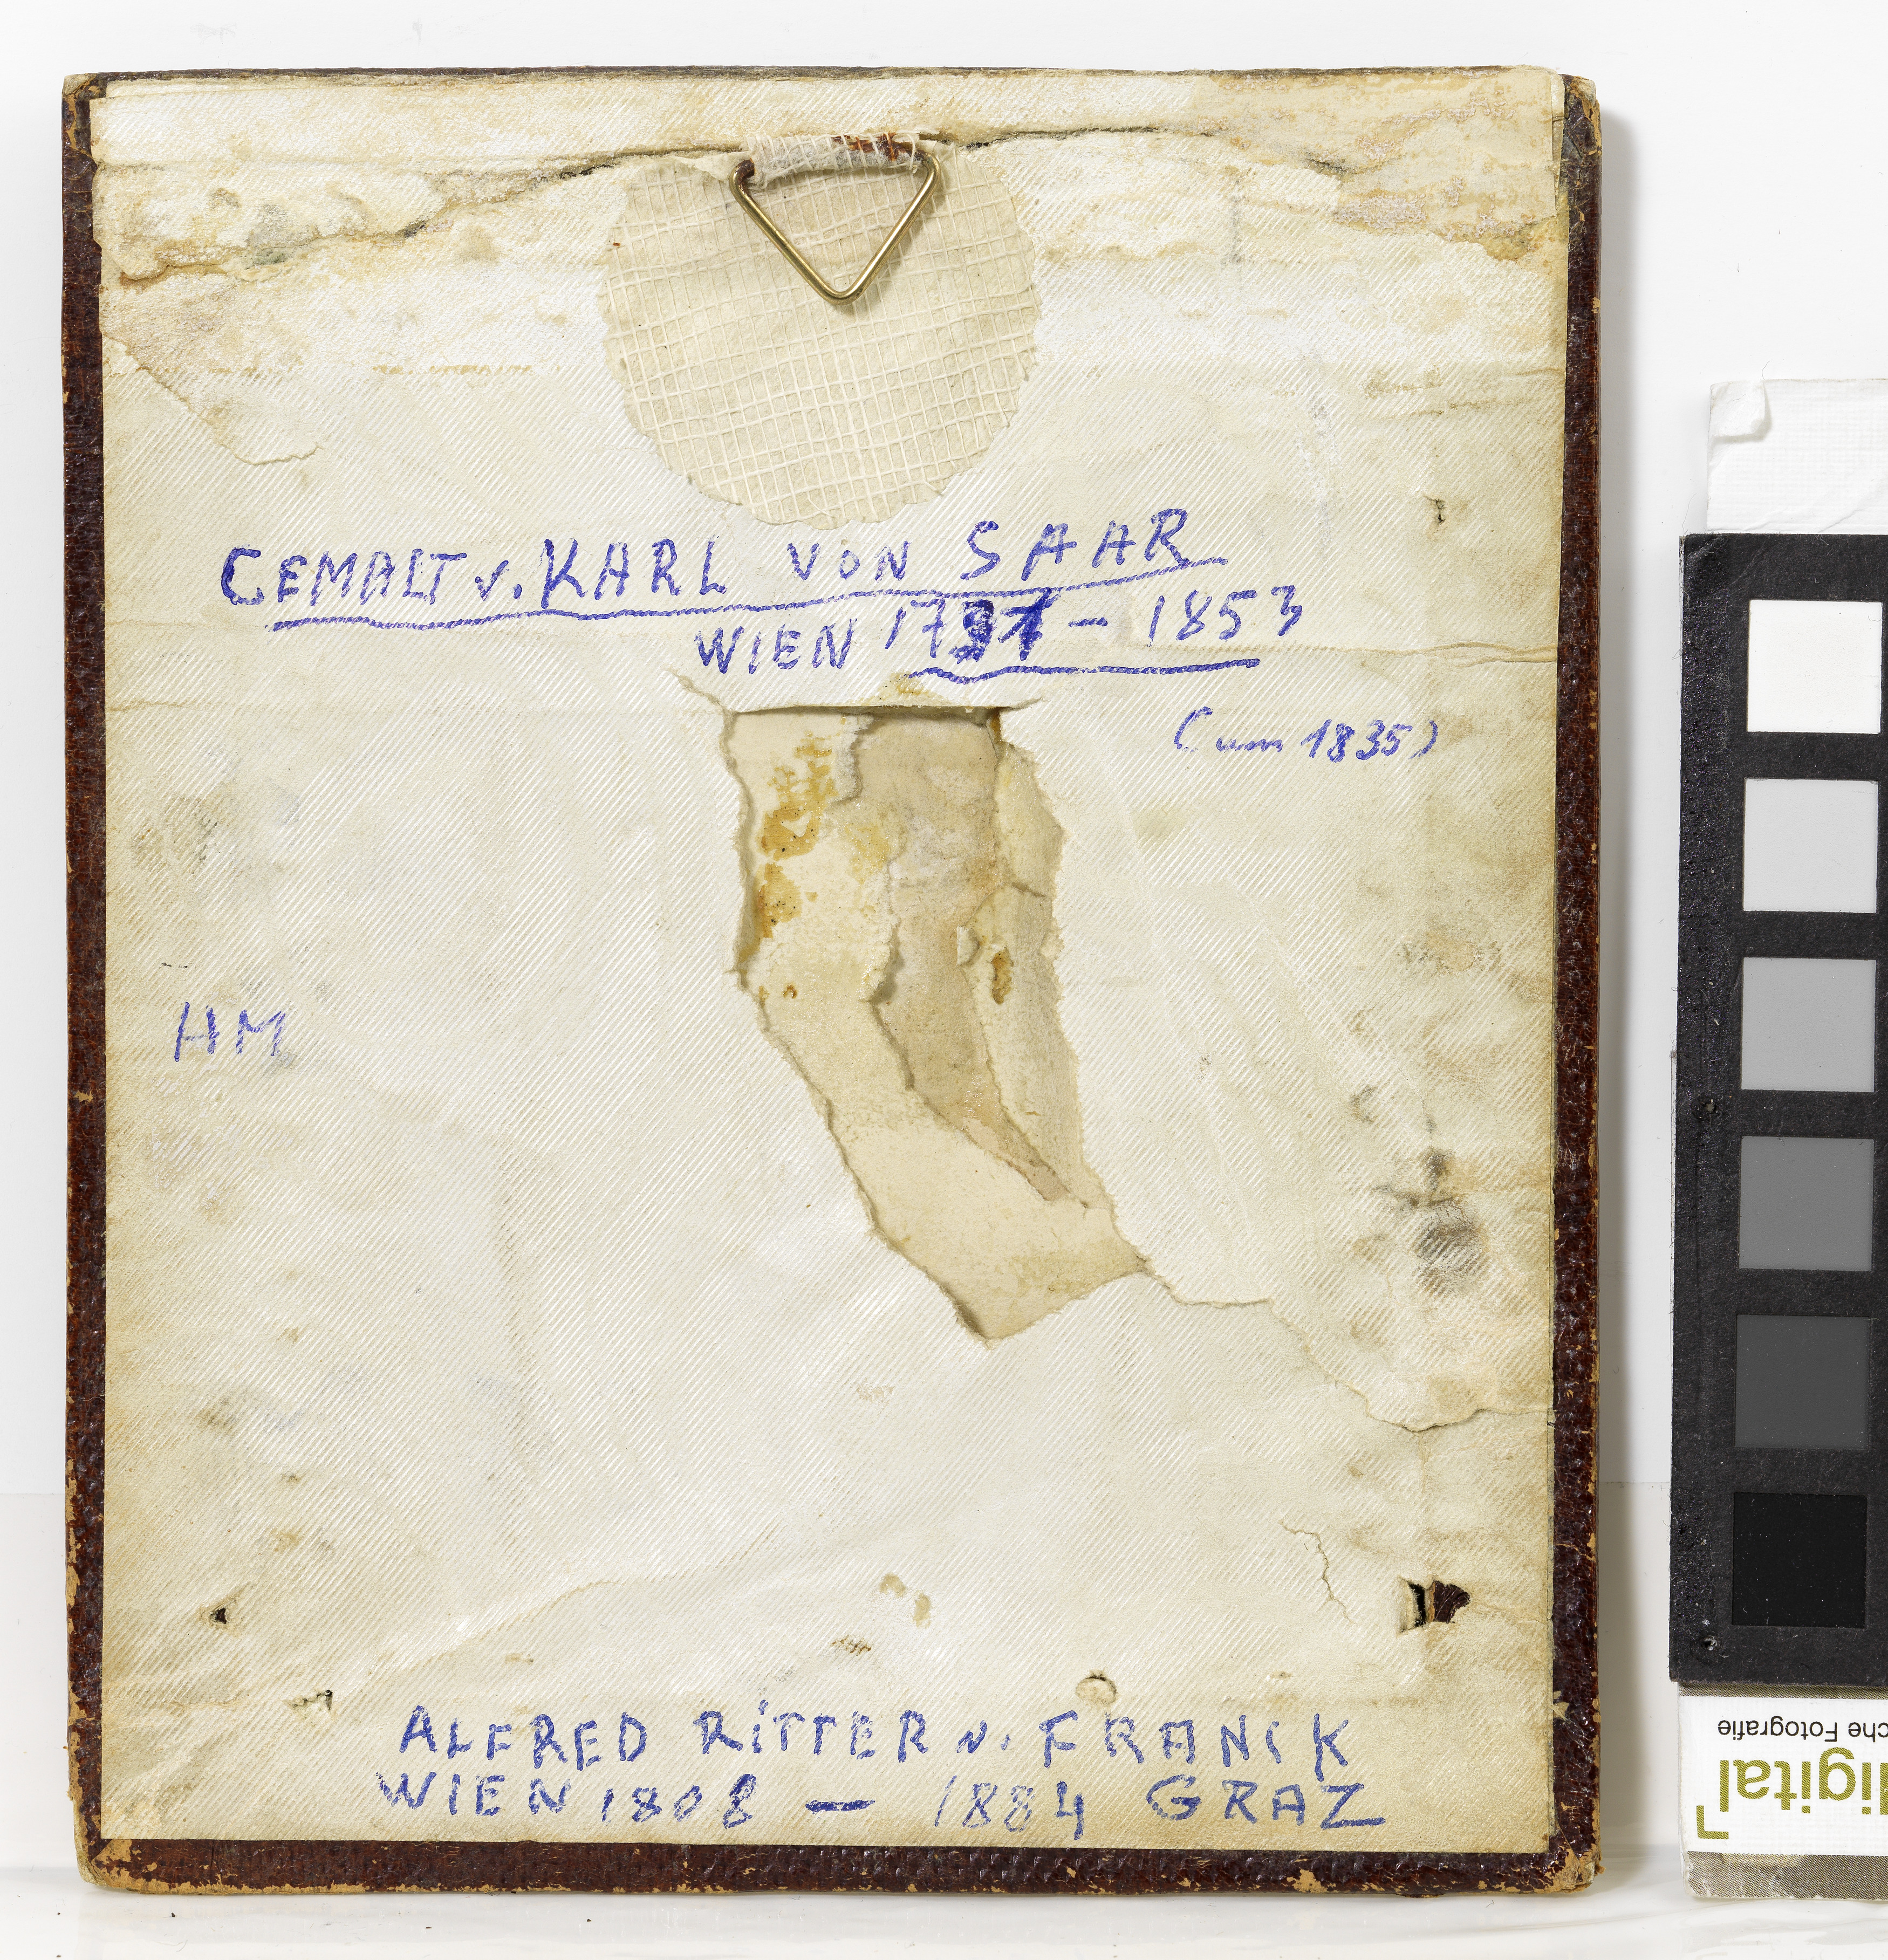 GEMALT v. KARL VON SAAR
WIEN 1797 - 1853
(um 1835)
HM
ALFRED RITTER v. FRANCK
WIEN 1808 — 1884 GRAZ
che Fotografie
digital